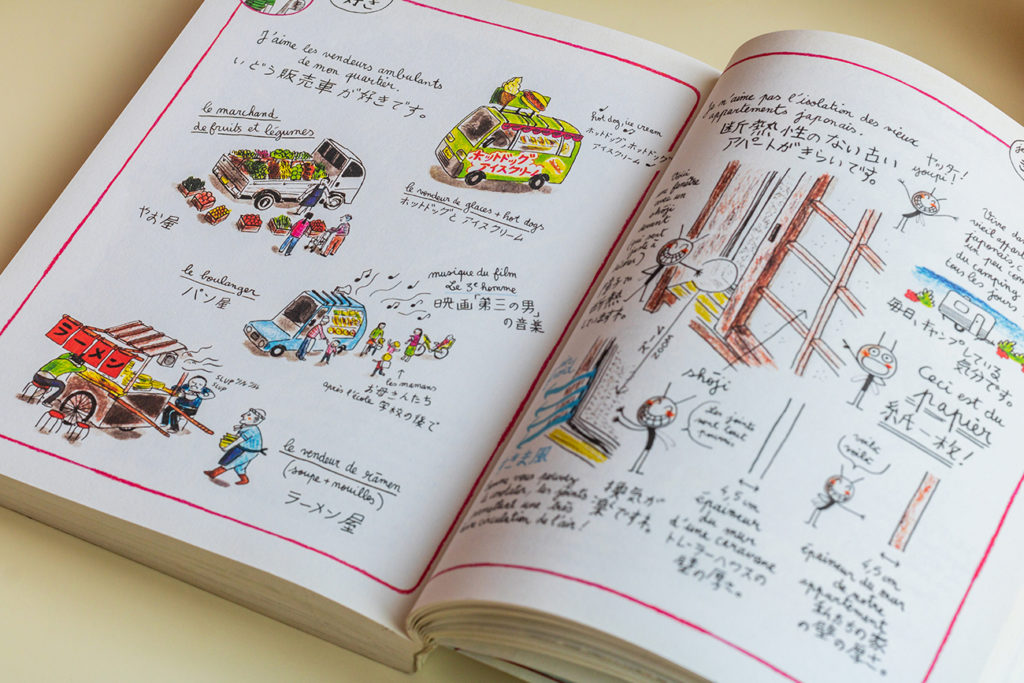 好き
J'aime les vendeurs ambulants
de mon quartier.
いどう販売車が好きです。
le marchand
de fruits et légumes
やお屋
Hot dog, ice cream
ホットドッグ、ホットドッグ
アイスクリーム
ホットドッグ
アイスクリーム
le vendeur de glaces + hot dogs
ホットドグと アイスクリーム
le boulanger
パン屋
musique du film
Le 3e homme
映画「第三の男」
の音楽
les mamans
お母さんたち
après l'école 学校の後で
ラーメン
SLUP
SLUP
le vendeur de rāmen
(soupe + nouilles)
ラーメン屋
Je n'aime pas l'isolation des vieux
appartements japonais.
断熱性のない古い
アパートがきらいです。
ヤッター!
youpi!
Ceci
shōji
ZOOM
ズーム
shōji
les joints
sont tout
すきま風
les joints
circulation de l'air!
換気が
楽ですね。
4,5 cm
épaisseur
du mur
d'une caravane
トレーラーハウスの
壁の厚さ。
Vivre da
vieil appart
japonais, c
un peu co
du camping
tous les jours
毎日、キャンプしている
気分です。
Ceci est du
papier
紙一枚!
voilà
voilà
4,5 cm
épaisseur du mur
de notre
appartement
私たちの家
の壁の厚さ。